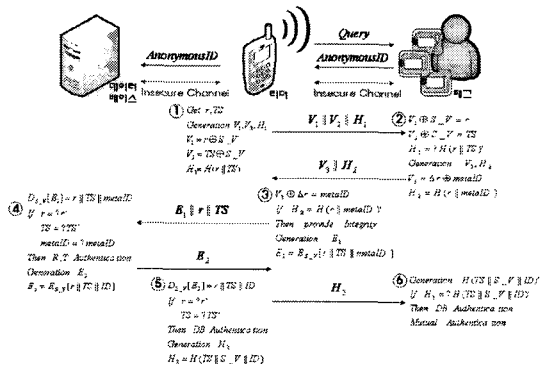 Query
AnonymousID
AnonymousID
데이터
베이스
Insecure Channel
리더
Insecure Channel
태그
① Get r,TS
Generation V₁,V₂,H₁
V₁=r⊕S_V
V₂=TS⊕S_V
H₁=H(r‖TS)
V₁ ‖ V₂ ‖ H₁
② V₁⊕S_V = r
V₂⊕S_V = TS
H₁ = ? H(r‖TS)'
Generation V₃,H₂
V₃ = Δr⊕metaID
H₂ = H(r‖metaID)
V₃ ‖ H₂
③ V₃⊕Δr = metaID
If H₂ = H(r‖metaID)'
Then provide Integrity
Generation E₁
E₁ = E_{S_V}[r‖TS‖metaID]
E₁ ‖ r ‖ TS
④ D_{S_V}[E₁]=r‖TS‖metaID
If r=?r'
TS=?TS'
metaID=?metaID
Then R,T Authentication
Generation E₂
E₂=E_{S_V}[r‖TS‖ID]
E₂
⑤ D_{S_V}[E₂]=r‖TS‖ID
If r=?r'
TS=?TS'
Then DB Authentication
Generation H₃
H₃=H(TS‖S_V‖ID)
H₃
⑥ Generation H(TS‖S_V‖ID)'
If H₃=?H(TS‖S_V‖ID)'
Then DB Authentication
Mutual Authentication